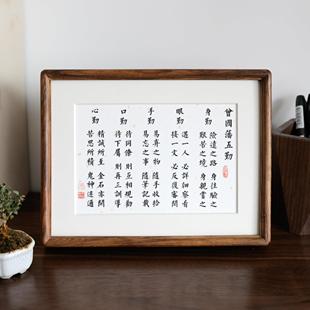 曾國藩五勤
身勤
險遠之路 身往驗之
艱苦之境 身親嘗之
眼勤
遇一人 必詳細察看
接一文 必反復審閱
手勤
易棄之物 隨手收拾
易忘之事 隨筆記載
口勤
待同僚 則互相規勸
待下屬 則再三訓導
心勤
精誠所至 金石亦開
苦思所積 鬼神迹通